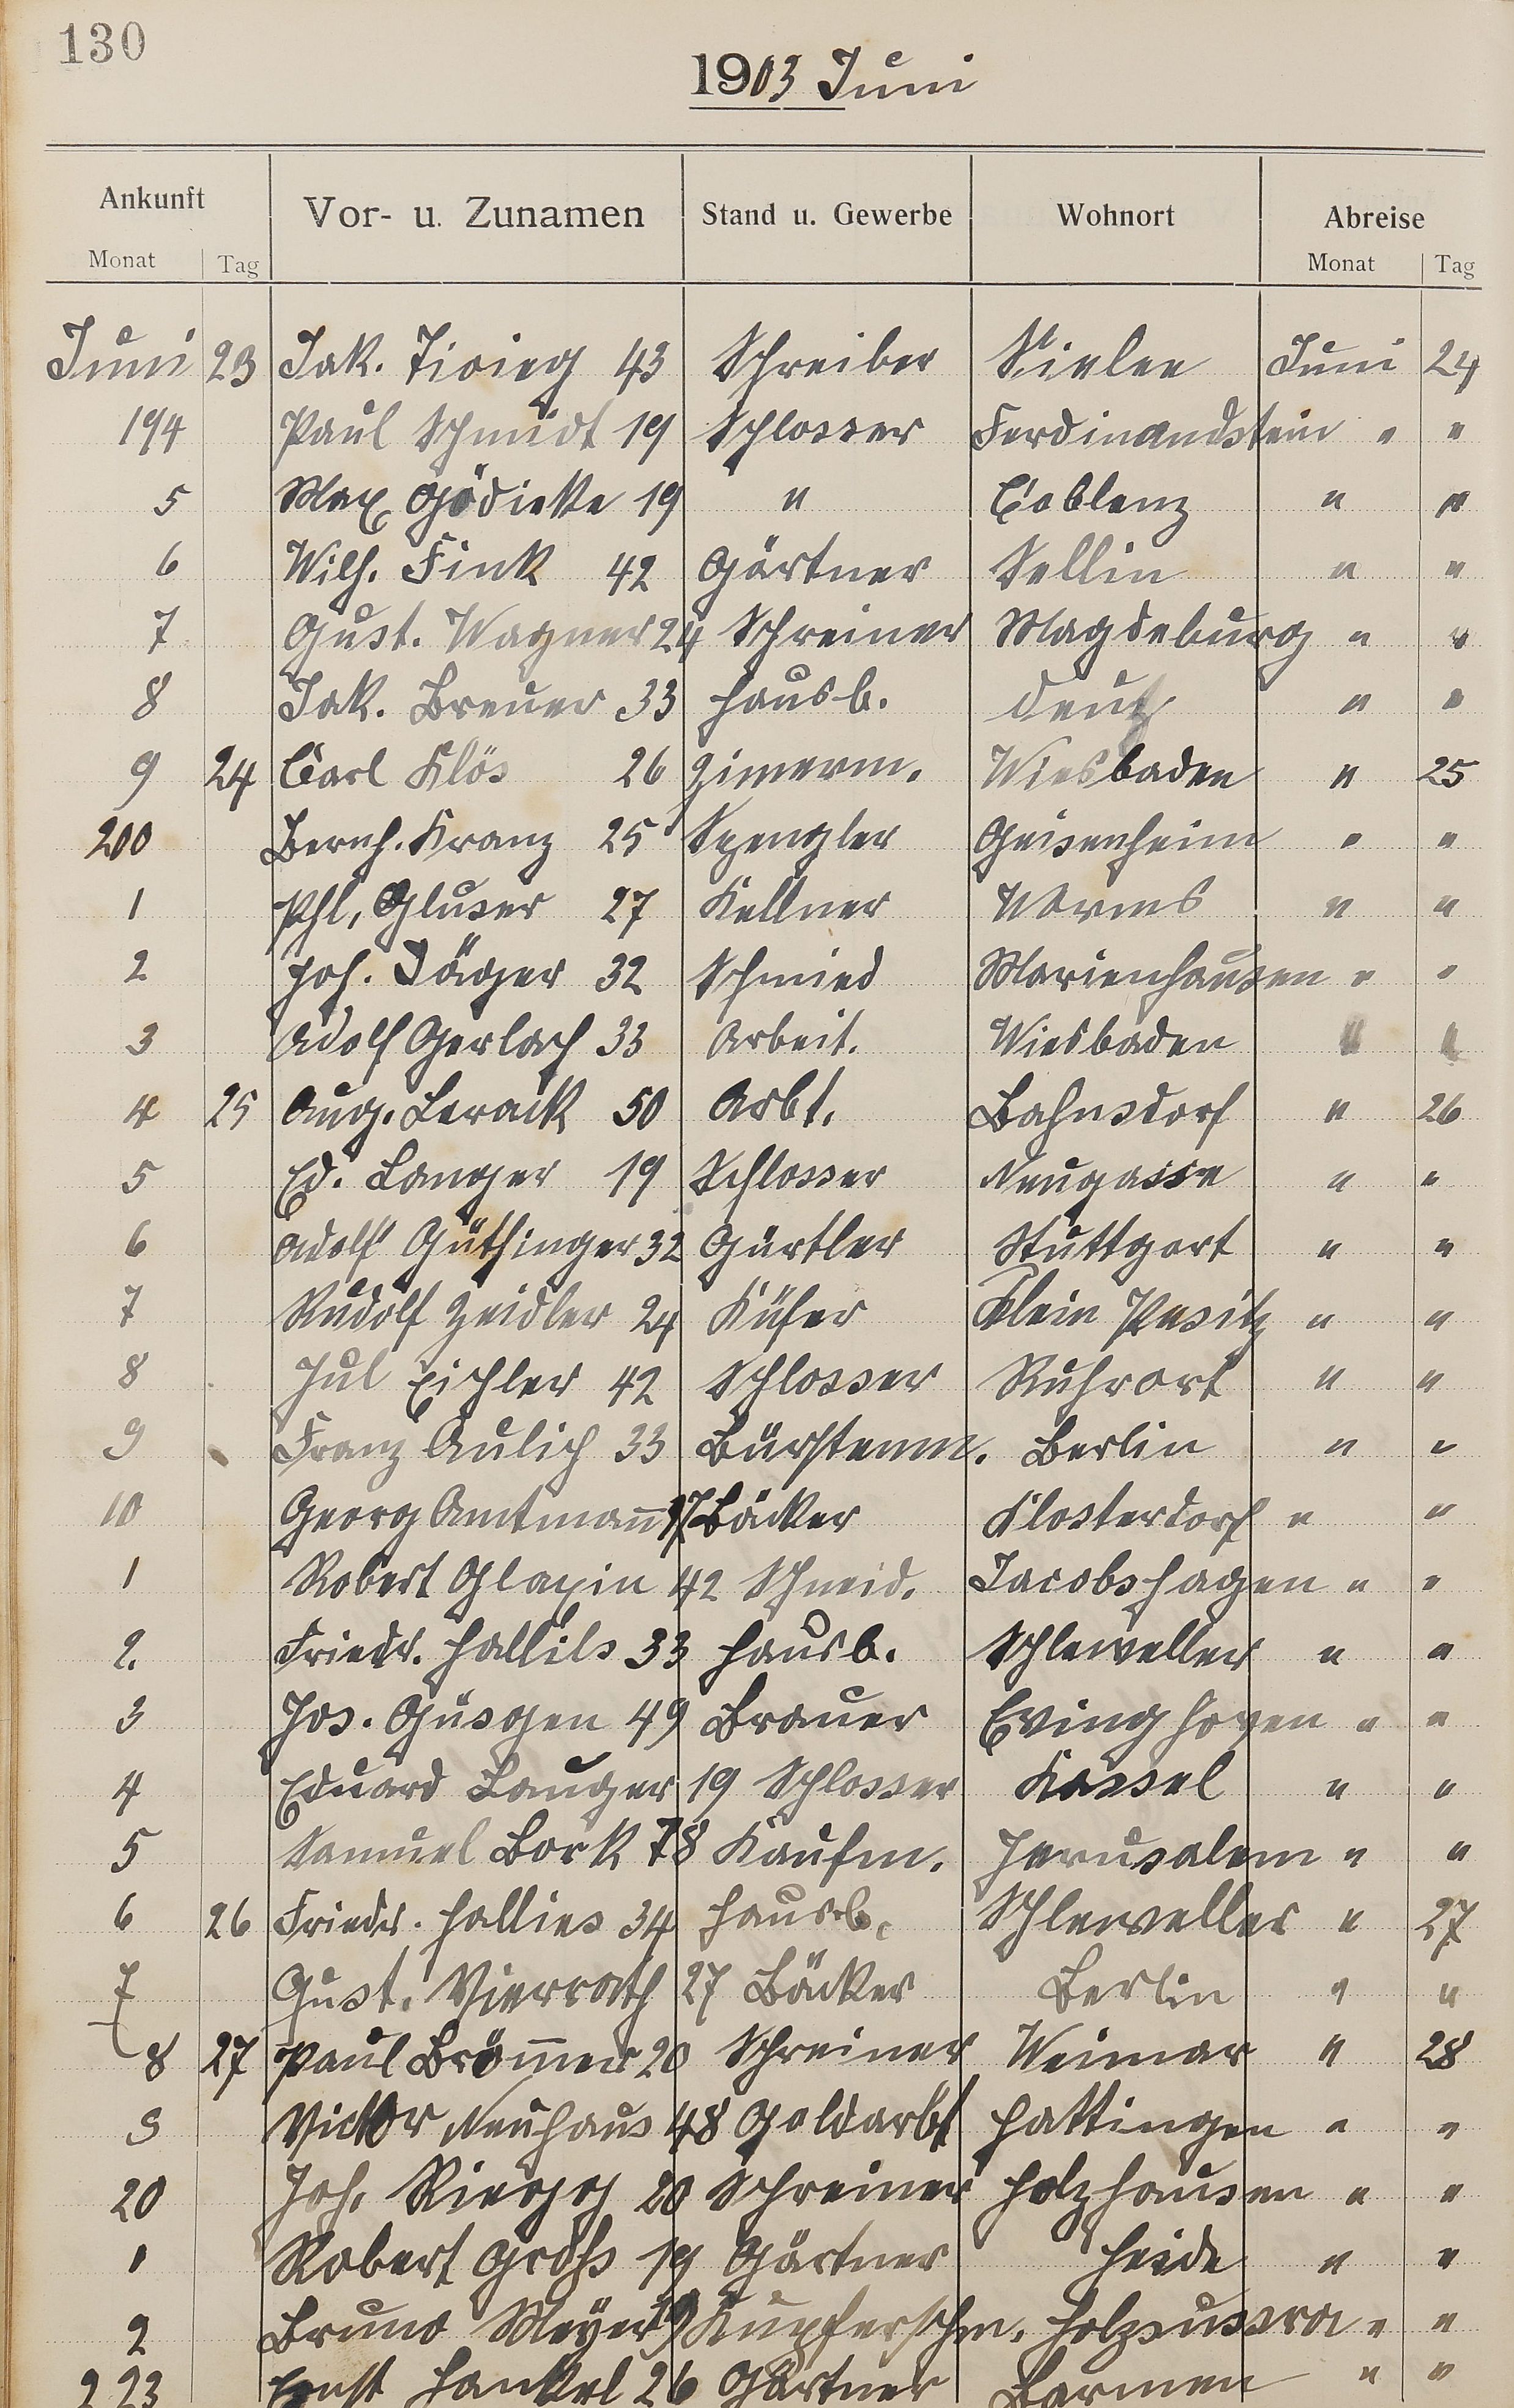 130
1903 Juni
Ankunft Vor- u. Zunamen Stand u. Gewerbe Wohnort Abreise
Monat Tag Monat Tag
Juni 23 Jak. 43 Schreiber Juni 24
194 Paul Schmidt 19 Schlosser Ferdinandstein " "
5 Max Gödicke 19 " Coblenz " "
6 Wilh. Fink 42 Gärtner Sellin " "
7 Gust. Wagner 24 Schreiner Magdeburg " "
8 Jak. Breuer 33 Hausb. Deutz " "
9 24 Carl Klös 26 Zimerm. Wiesbaden " 25
200 Bernh. Kranz 25 Spengler Geisenheim " "
1 Phl. Gluser 27 Kellner Worms " "
2 Joh. Jäger 32 Schmied Marienhausen " "
3 Adolf Gerlach 33 Arbeit. Wiesbaden " "
4 25 Aug. Lerack 50 Arbt. Bahnsdorf " 26
5 Ed. Langer 19 Schlosser Neugasse " "
6 Adolf Güthinger 32 Gürtler Stuttgart " "
7 Rudolf Zeidler 24 Küfer Klein Pesitz " "
8 Jul Eichler 42 Schlosser Ruhrort " "
9 Franz Aulich 33 Bürstenm. Berlin " "
10 Georg Amtman̄ Bäcker Klosterdorf " "
1 Robert Glaxin 42 Schneid. Jacobshagen " "
2. Friedr. Hallils 33 Hausb. Schleweller " "
3 Jos. Güsgen 49 Brauer Evinghoven " "
4 Eduard Langer 19 Schlosser Kassel " "
5 Samuel Bork 78 Kaufm. Jerusalem " "
6 26 Friedr. Hallies 34 Hausb. Schleweller " 27
7 Gust. Vierrath 27 Bäcker Berlin " "
8 27 Paul Bröm̄er 20 Schreiner Weimar " 28
9 Victor Neuhaus 48 Goldarbt Hattingen " "
20 Joh. Riegg 20 Schreiner Holzhausen " "
1 Robert Groß 19 Gärtner Heide " "
2 Bruno Meyer 19 Kupferschm. Holzsussra " "
223 Ernst Hankel 26 Gärtner Barmen " "